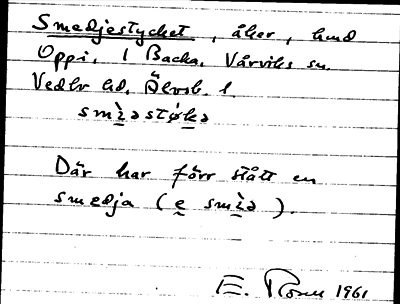 Smedjestycket, åker, hmd
Oppi, 1 Backa, Vårviks sn.
Vedbo hd. Älvsb. l.
smìəstykə
Där har förr stått en
smedja (e smìə).
E. 1961